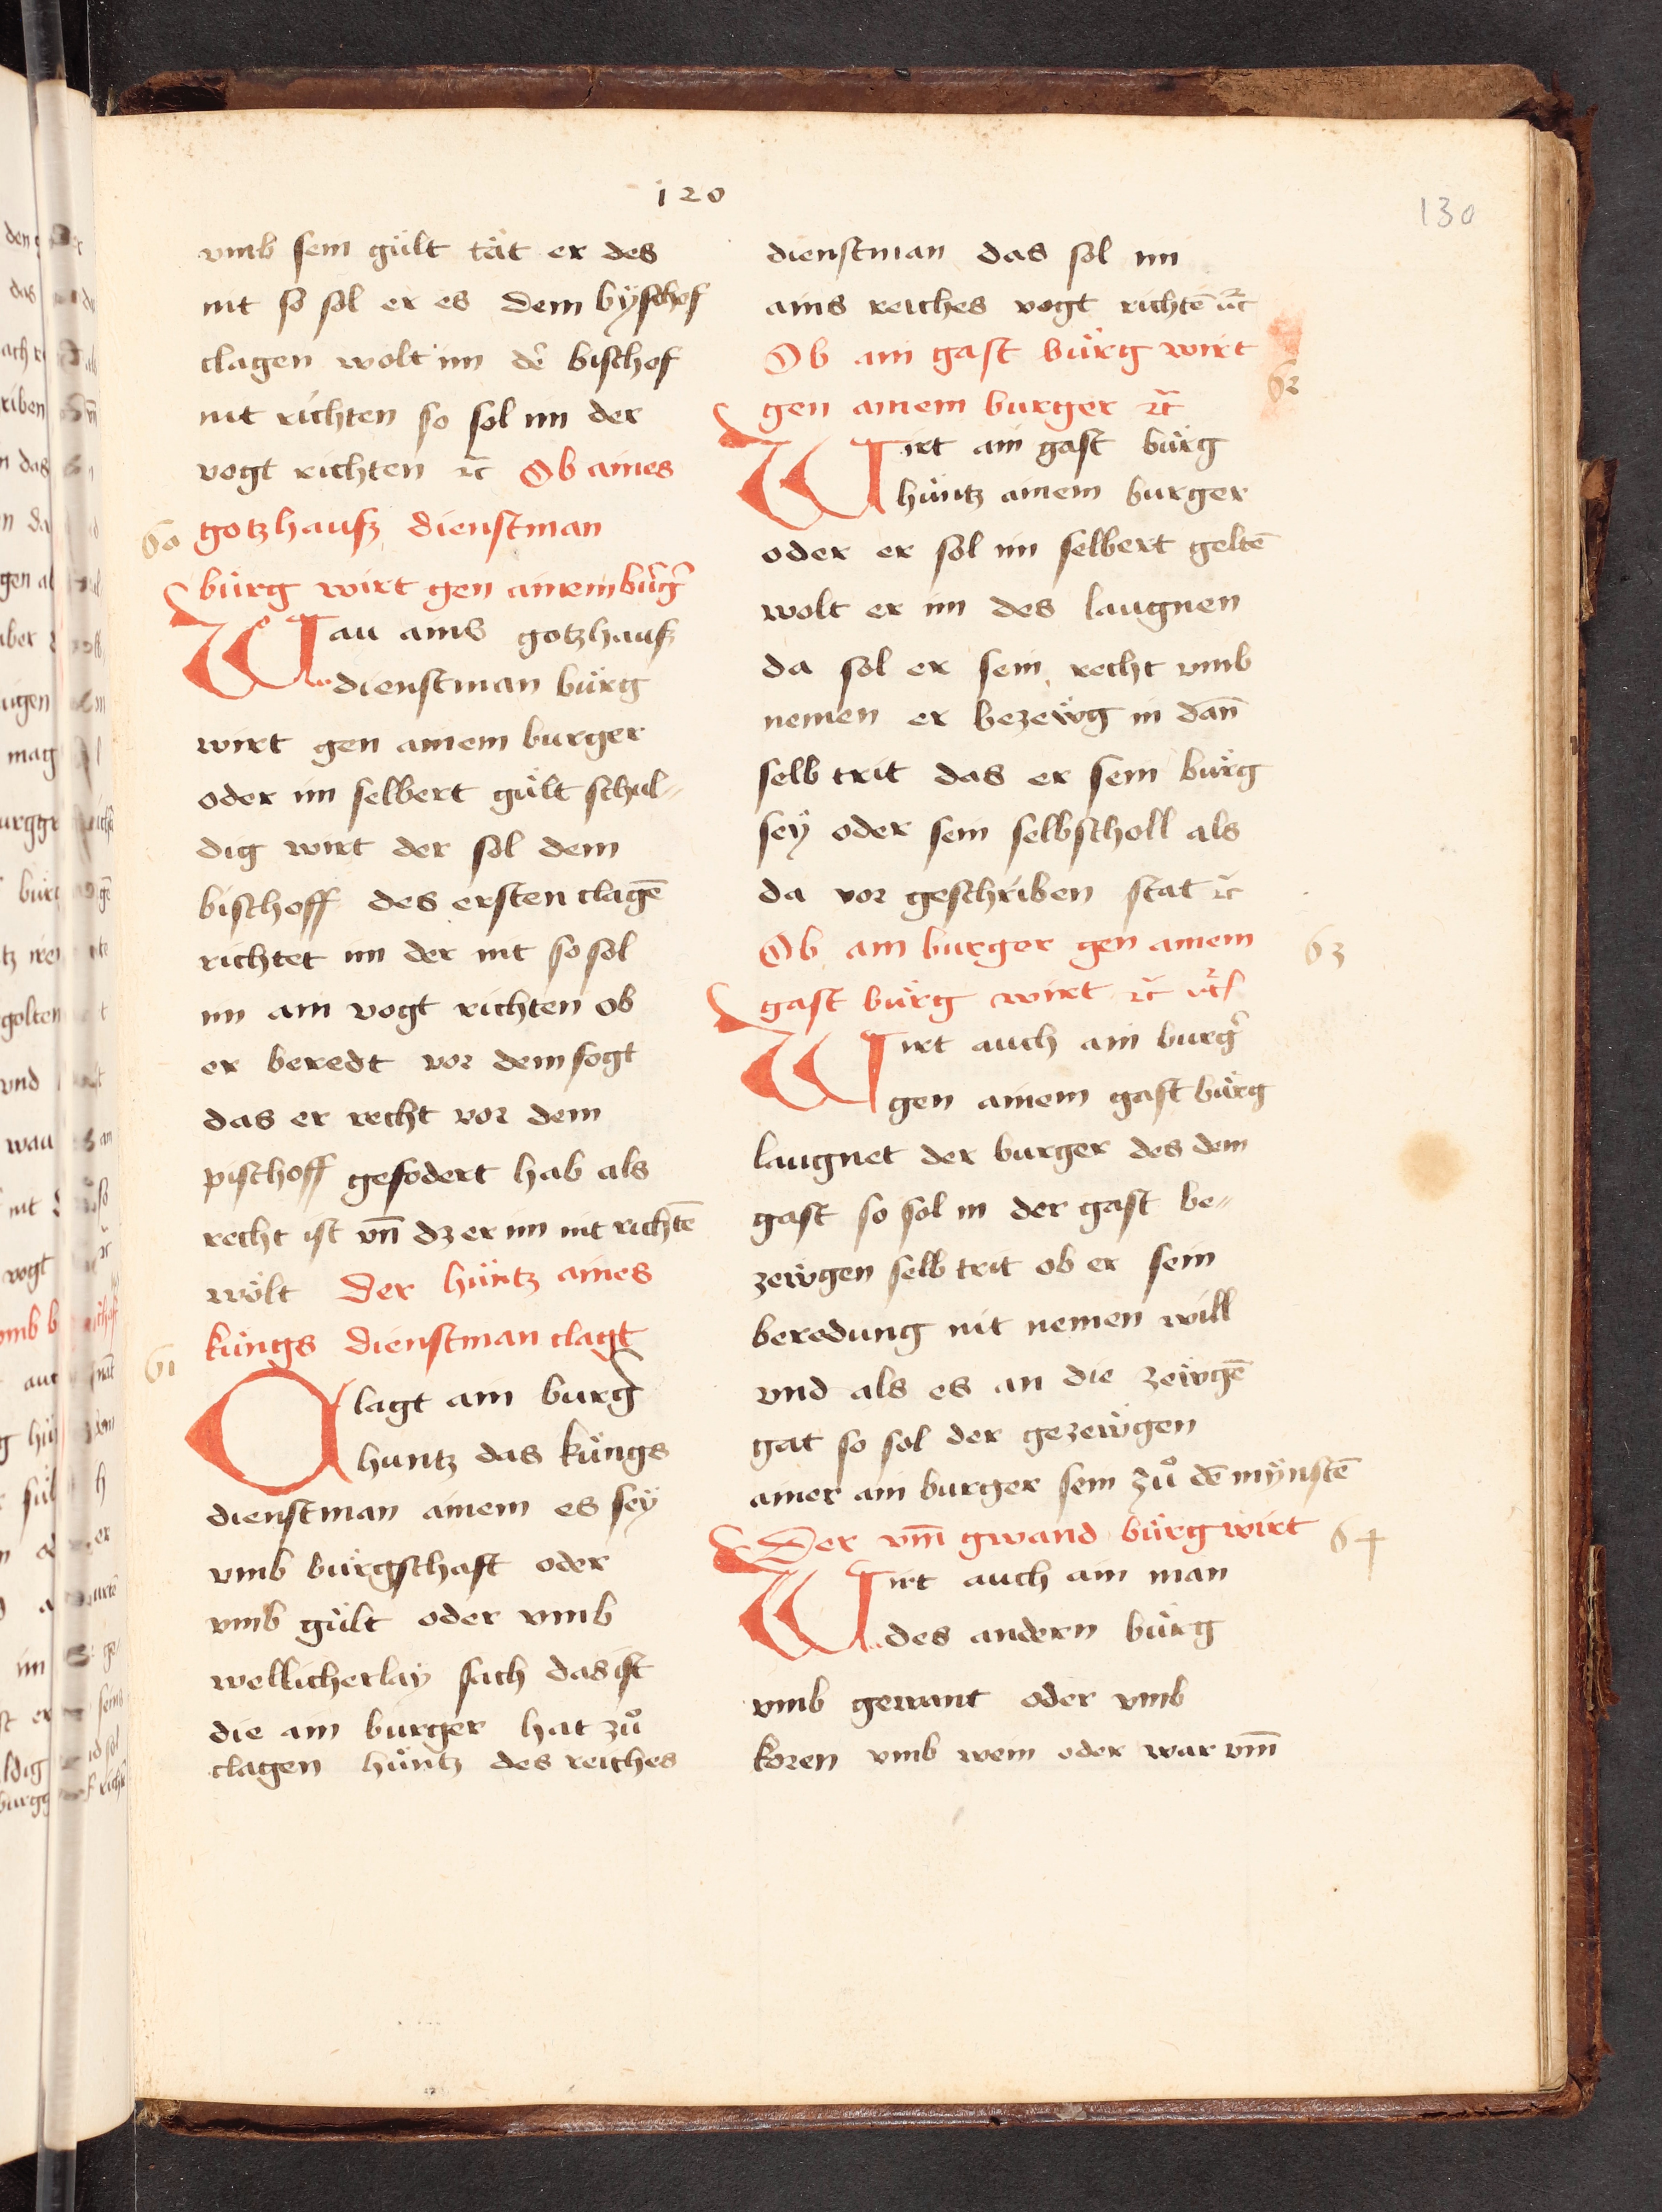 120
130
vmb sein gült tät er des
nit so sol er es dem byschof
clagen wolt im de᷑ bischof
nit richten so sol im der
vogt richten ⁊c̄ Ob aines
60 gotzhausz dienstman
bürg wirt gen ainem bu᷑g᷑
Wau ains gotzhausz
dienstman bürg
wirt gen ainem burger
oder im selbert gült schul„
dig wirt der sol dem
bischoff des ersten clagē
richtet im der nit so sol
im ain vogt richten ob
er beredt vor dem fogt
das er recht vor dem
pischoff gefodert hab als
recht ist vn̄ dz er im nit richtē
wölt Der hüntz aines
61 küngs dienstman clagt
Clagt ain burg᷑
huntz das küngs
dienstman ainem es sey
vmb bürgschaft oder
vmb gült oder vmb
wellicherlay sach das ist
die ain burger hat zů
clagen hüntz des reiches
dienstman das sol im
ains reiches vogt richtē ⁊c̄
Ob ain gast bürg wirt
62
gen ainem burger ⁊c̄
Wirt ain gast bürg
hüntz ainem burger
oder er sol im selbert geltē
wolt er im des laugnen
da sol er sein recht vmb
nemen er bezewg in dan̄
selb trit das er sein bürg
sey oder sein selbscholl als
da vor geschriben stat ⁊c̄
Ob ain burger gen ainem 63
gast bürg wirt ⁊c̄
Wirt auch ain burg᷑
gen ainem gast bürg
laugnet der burger des dem
gast so sol in der gast be„
zewgen selb trit ob er sein
beredung nit nemen will
vnd als es an die zewgē
gat so sol der gezewgen
ainer ain burger sein zů dē mynstē
Der vm̄ gwand bürg wirt 64
Wirt auch ain man
des andern bürg
vmb gewant oder vmb
koren vmb wein oder war vm̄